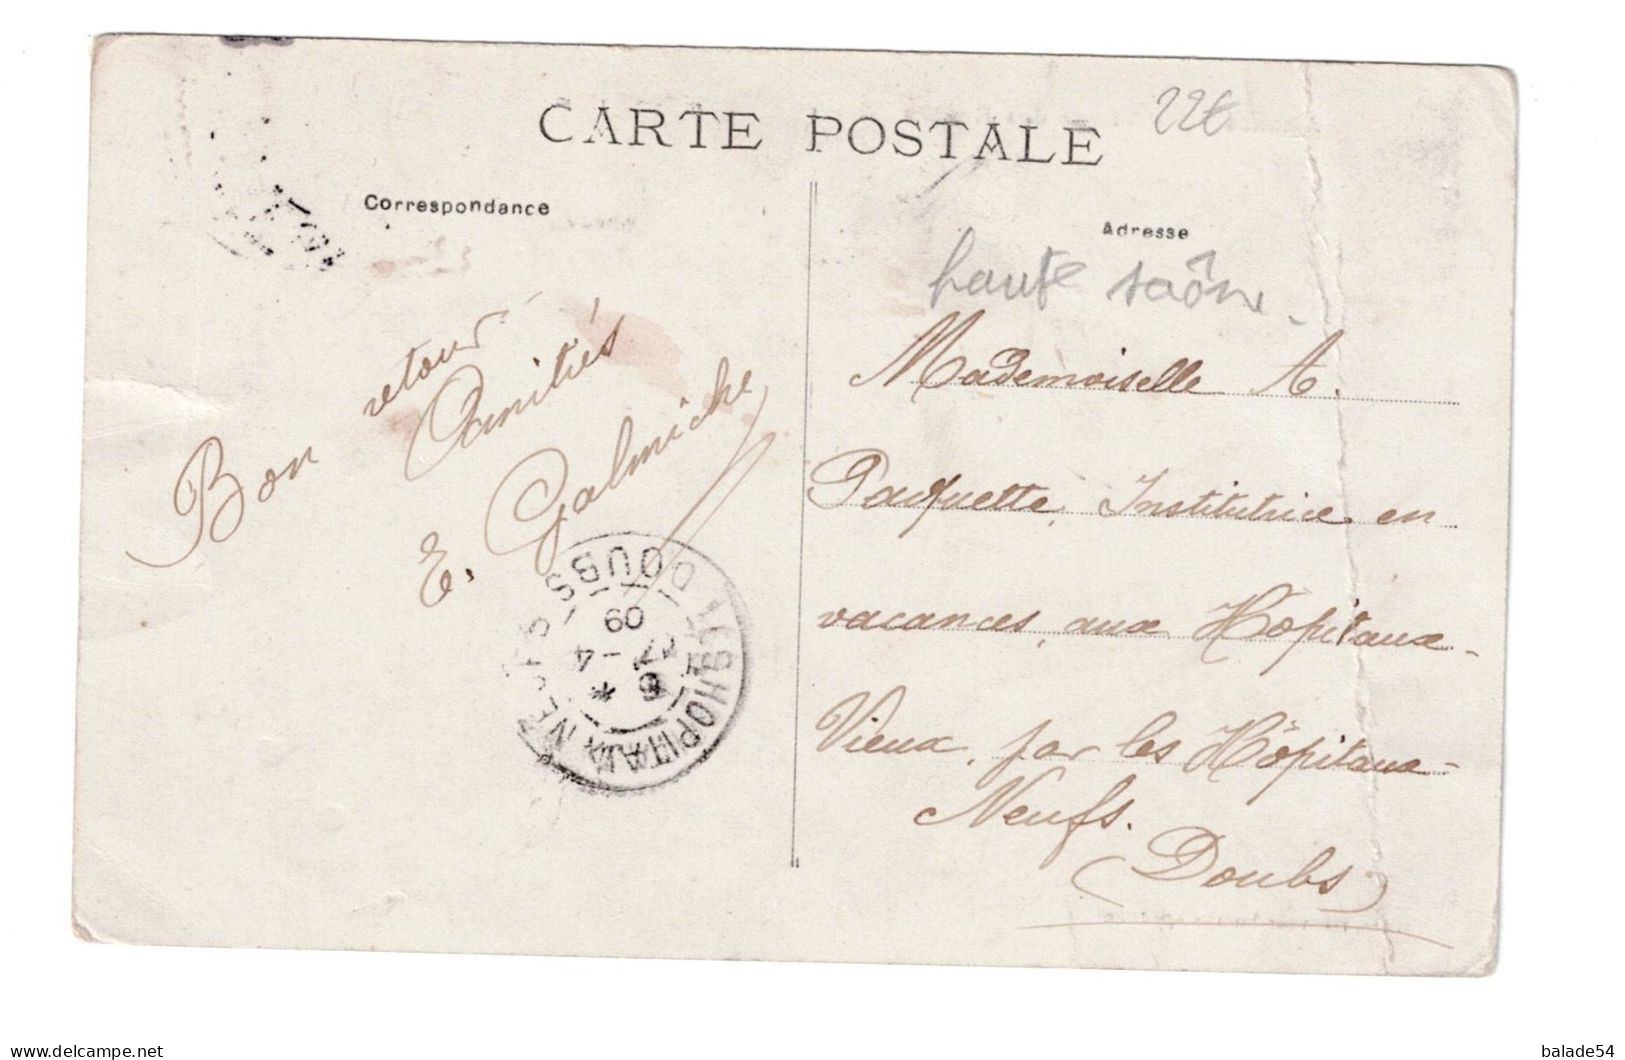 CARTE POSTALE
22€
Correspondance
Adresse
haute saône
Bon retour
Amitiés
E. Galmiche
Mademoiselle A.
Paquette, Institutrice en
vacances, aux Hôpitaux-
Vieux, par les Hôpitaux-
Neufs.
(Doubs)
LES HOPITAUX NEUFS
DOUBS
17 -4
09
delcampe.net
balade54